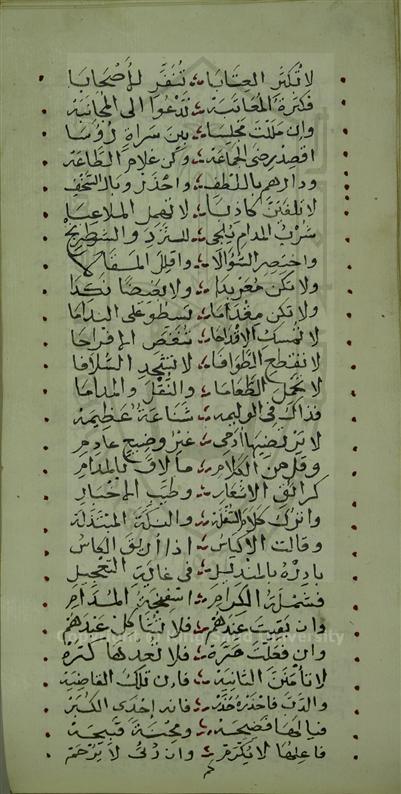 لا تكثر العتابا تنفر الأصحابا
فكثرة المعاتبة تدعوا الى المجانبة
وان حللت مجلسا بين سراة رؤسا
اقصد رضى الجماعة وكن غلام الطاعة
ودارهم باللطف واحذر وبال السخف
لا تلفين كاذبا لا تهمل الملاعبا
شرب المدام يلجى للنرد والشطرنج
واختصر السؤالا واقلل المقالا
ولا تكن معربدا ولا بغيضا نكدا
ولا تكن مقداما تسطو على الندامى
لا تمسك الاقداحا تنغص الافراحا
لا تقطع الطوافا لا تشهد السلافا
لا تحمل الطعاما والنقل والمداما
فذاك في الوليمه شناعة عظيمه
لا يرتضيها آدمى غير وضيع عادم
وقل من الكلام ما لاق بالمدام
كرائق الاشعار وطيب الاخبار
واترك كلام السفلة والنكتة المبتذلة
وقالت الاكياس اذا اريق الكاس
بادره بالمنديل في غاية التعجيل
فشملة الكرام اسفنجة المدام
وان بقيت عندهم فلا تشاكل عبدهم
وان فعلت مرة فلا تعدها كرة
لا تأمنن الثانية فان تلك القاضية
والدب فاحذره حذر فانه احدى الكبر
فيالها فضيحة ومحنة قبيحة
فاعلها لا يكرم وان رئى لا يرحم
Copyright © King Saud University